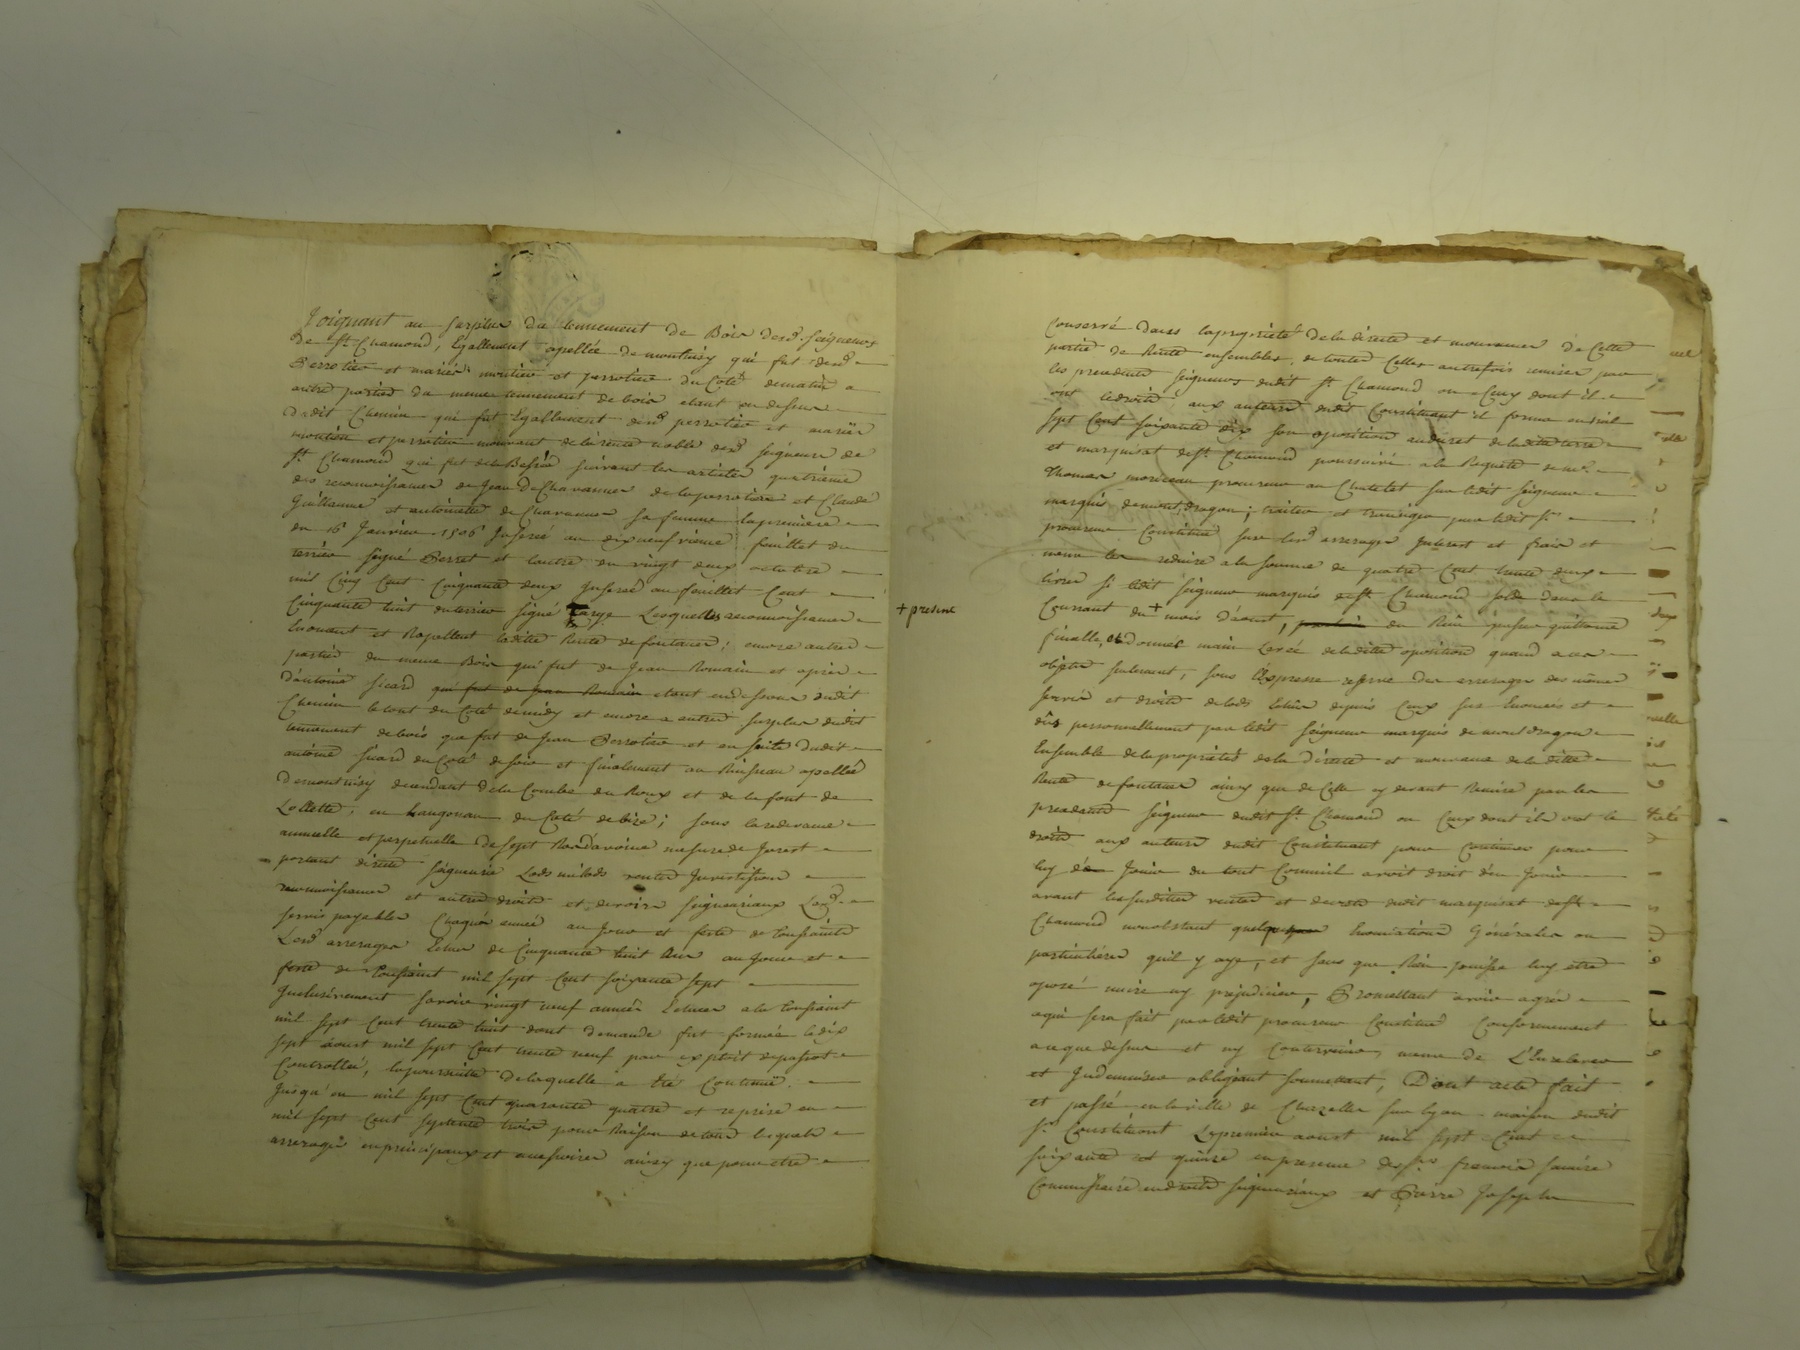 Joignant au surplus du tennement de Bois desd. seigneurs
de St Chamond, Egallement apellée de montuisy qui fut desd
Perrotin et mariés moutin et perrotin du Coté dematin a
autre partie du meme tennement de bois etant au dessus
dudit Chemin qui fut Egallement desd perrotin et mariés
moutin et perrotin mouvant de la rente noble desd seigneur de
St Chamond qui fut des suivant les articles quatrieme
des reconnoissances de Jean DeChavannes de la perrotine et Claude
Guillaume et antoinette de Chavannes sa femme la premiere
du 16 Janvier 1506 Inseré au dix neufvieme feuillet du
terrier signé Perret et l'autre du vingt deux octobre
mil cinq Cent Cinquante deux Inseré au feuillet Cent
Cinquante huit du terrier signé Lesquelles reconnoissances
Enoncent et Rapellent laditte Rente de fontanes; encore autres
parties du meme Bois qui fut de Jean Romain et après
d'antoine sicard qui fut de jean Romain etant endessous dudit
Chemin le tout du Coté de midy et encore a autres surplus dudit
tennement de bois que fut de Jean Perrotin et en suitte dudit
antoine sicard du Coté de soir et finalement au Ruisseau apellée
de montuisy decendant de la Combe du Roux et de la font de
Lollette, en du Coté de bize; sous la redevance
annuelle et perpetuelle de sept Ras d'avoine mesure de Jarest
portant directe seigneurie Lods milods ventes Jurisdiction
reconnoissances et autres droits et devoirs seigneuriaux Lesd.
servis payables Chaque année au jour et feste de toussaints
Lesd arrerages Echus de Cinquante huit ans au Jour et
feste de Toussaint mil sept Cent soixante sept
Inclusivement savoir vingt neuf années Echues a la Toussaint
mil sept Cent trente huit dont demande fut formée le dix
sept aoust mil sept Cent trente neuf par exploit depassot
Controllée, la poursuitte de laquelle a été Continué
Jusqu'en mil sept Cent quarante quatre et reprise en
mil sept Cent septante trois pour Raison de tous lesquels
arrerages en principaux et accessoires ainsy que pour etre
+ presene
Conservé dans la proprieté de la directe et mouvance de Cette
partie de Rente ensembles de toutes Celles autrefois remises par
les precedents seigneurs dudit St Chamond ou Ceux dont il
ont le droit aux auteurs dudit Constituant il forma en mil
sept Cent soixante dix son oposition au decret de la terre
et marquisat de St Chamond poursuivi a la Requete de me
Thomas moriceau procureur au Chatelet sur ledit seigneur
marquis de mont dragon; traiter et transiger par ledit sr
procureur Constitué sur lesd arrerages Interest et frais et
meme les reduire a la somme de quatre Cent trente deux
livres si ledit seigneur marquis de St Chamond solde dans le
Courrant du + mois d'aoust, du Rein passer quittance
finalle, et donner main Levée de laditte oposition quand a ces
objets seulement, sous l'Expresse reserve des arrerages des mêmes
servis et droits de lods Echus depuis Ceux sus Enoncés et
dûs personnellement par ledit seigneur marquis de mont dragon
Ensemble de la proprieté de la directe et mouvance de la ditte
Rente de fontanes ainsy que de Celle cy devant Remise par les
precedants seigneurs dudit St Chamond ou Ceux dont ils ont le
droit aux auteurs dudit Constituant pour Continuer pour
luy d'en Jouir du tout Comme il avoit droit d'en Jouir
avant lesdittes ventes et decrets dudit marquisat de St
Chamond nonobstant quelques Enonciations Générales ou
particulières qu'il y aye, et sans que Rien puisse luy etre
oposé nuire ny prejudicier, Promettant avoir agrée
ce qui sera fait par ledit procureur Constitué Conformement
a ce que dessus et ny Contrevenir, meme de L'En relever
et Indemniser obligeant soumettant, Dont acte fait
et passé en la ville de Chazelles sur lyon maison dudit
sr Constituant Le premier aoust mil sept Cent
soixante et quinze en presence des srs francois
Commissaire en droits seigneuriaux et Pierre Joseph